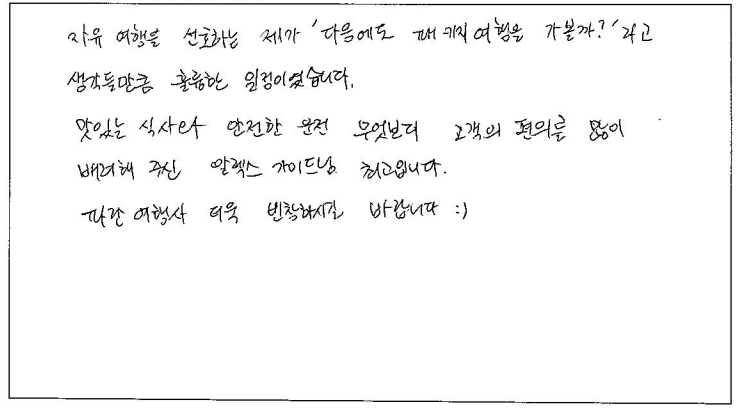 자유 여행을 선호하는 제가 '다음에도 패키지 여행을 가볼까?' 라고
생각들만큼 훌륭한 일정이였습니다.
맛있는 식사와 안전한 운전 무엇보다 고객의 편의를 많이
배려해 주신 알렉스 가이드님 최고입니다.
파란 여행사 더욱 번창하시길 바랍니다 :)